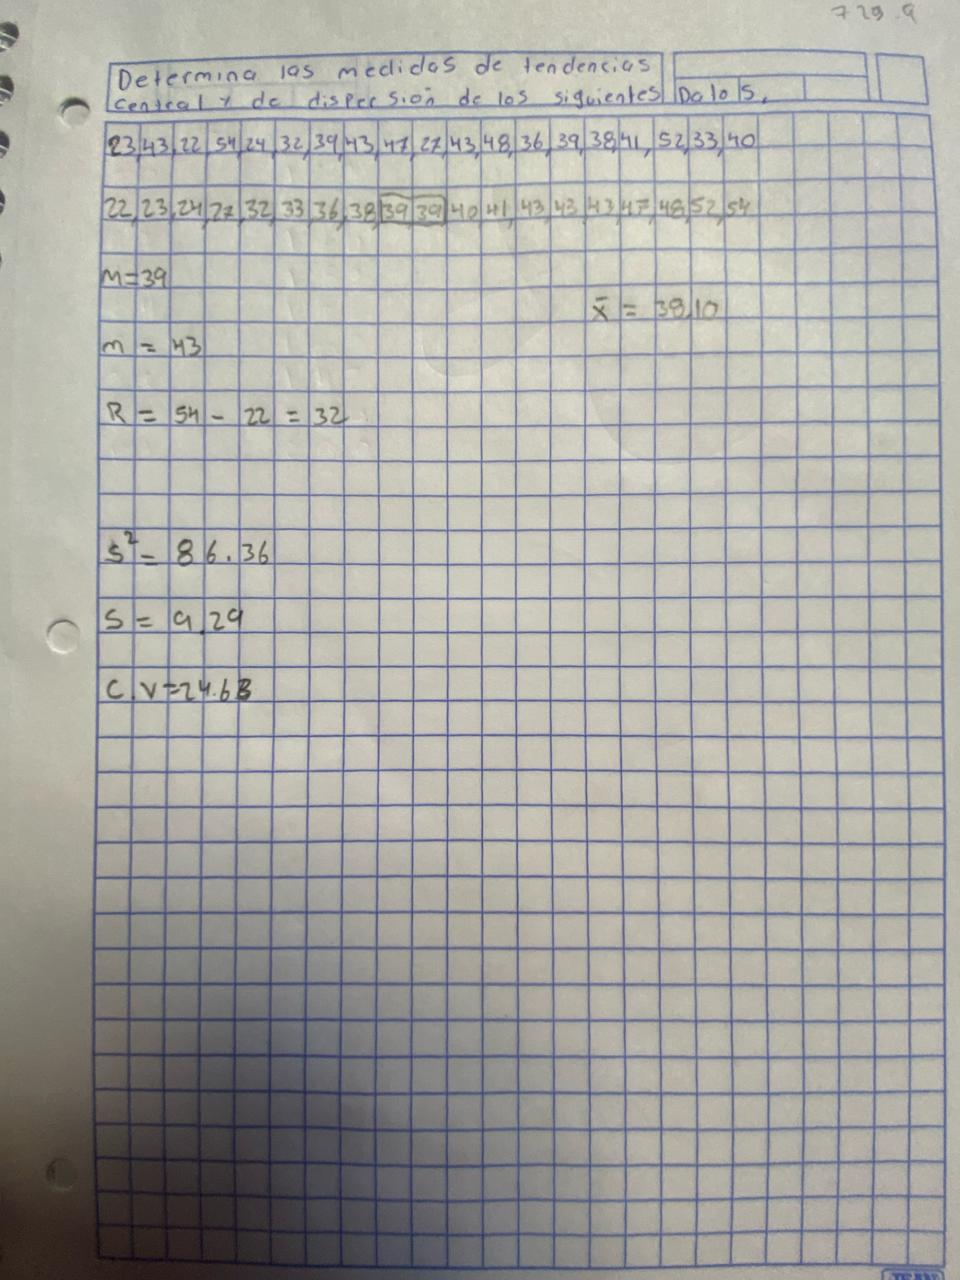 729.9
Determina las medidas de tendencias
central y de dispersión de los siguientes Datos.
23,43,22,54,24,32,39,43,47,27,43,48,36,39,38,41,52,33,40
22,23,24,27,32,33,36,38,39,39,40,41,43,43,43,47,48,52,54
M=39
x̄ = 38.10
m = 43
R = 54 - 22 = 32
S² = 86.36
S = 9.29
C.V=24.68